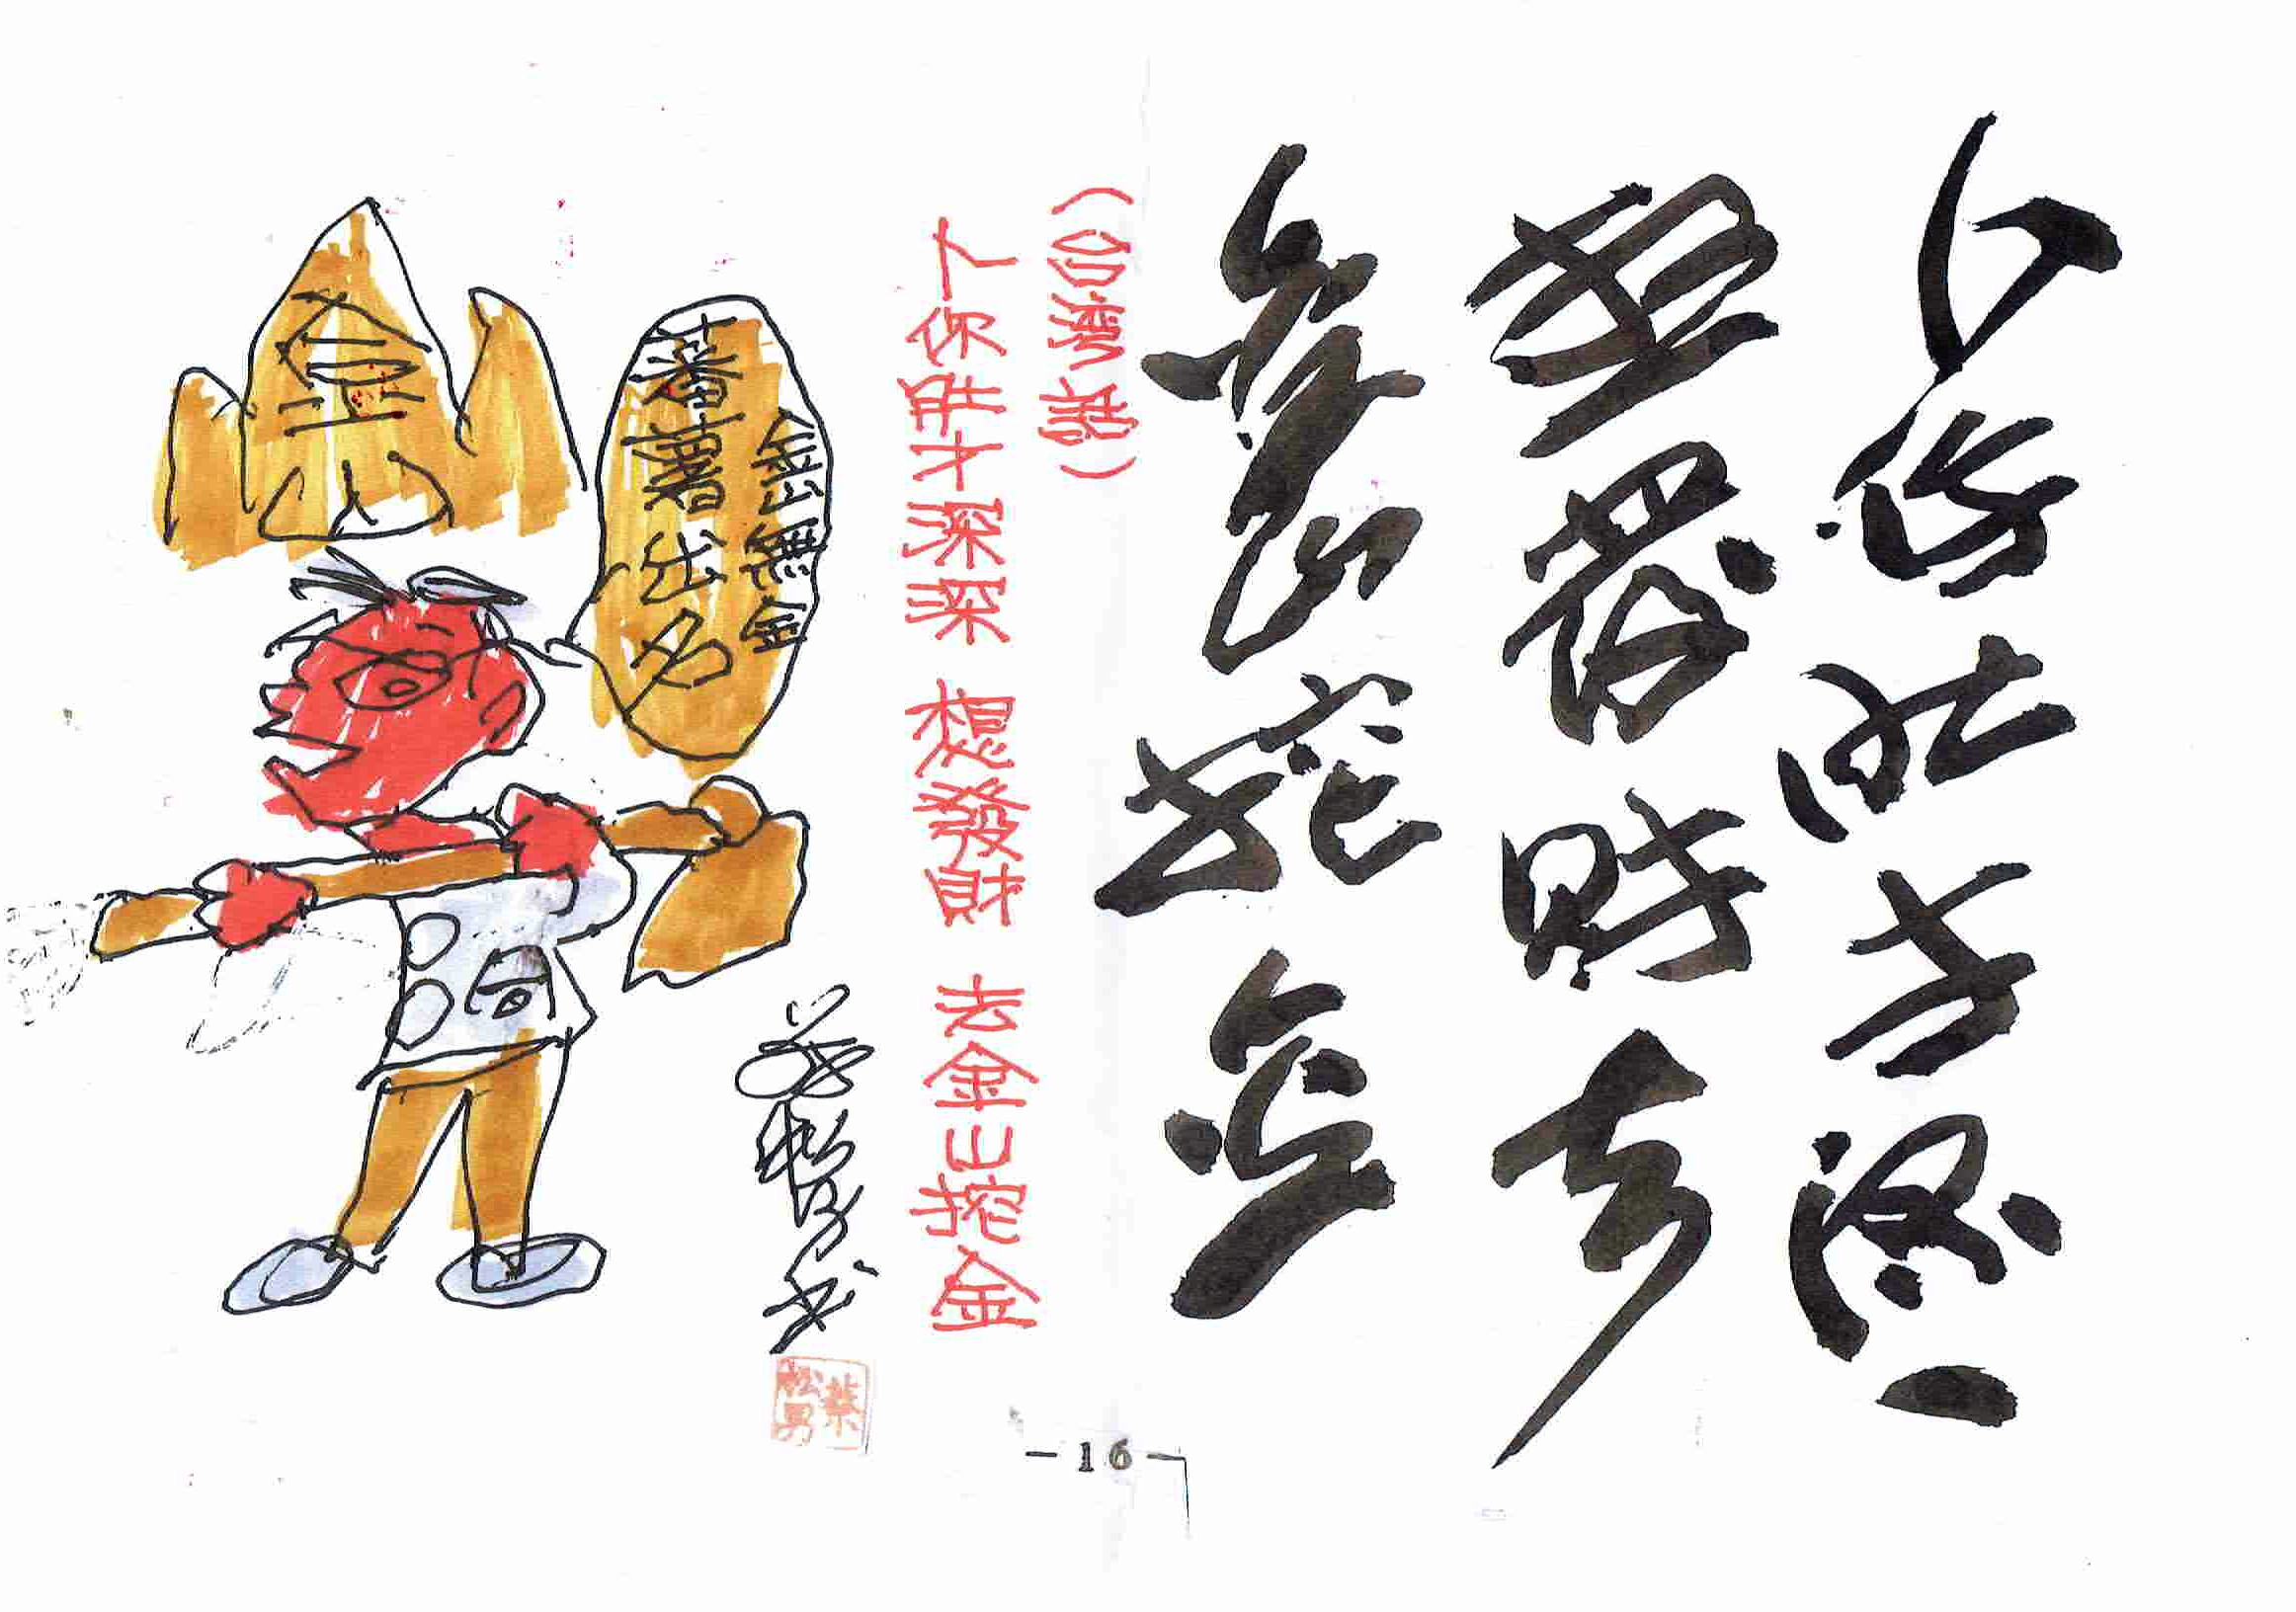 人你才深ミ
想發財去
金山挖金
（台湾語）
人你才深深 想發財 去金山挖金
金山無金
蕃薯出名
金山
蔡松男书
蔡
松男
-16-